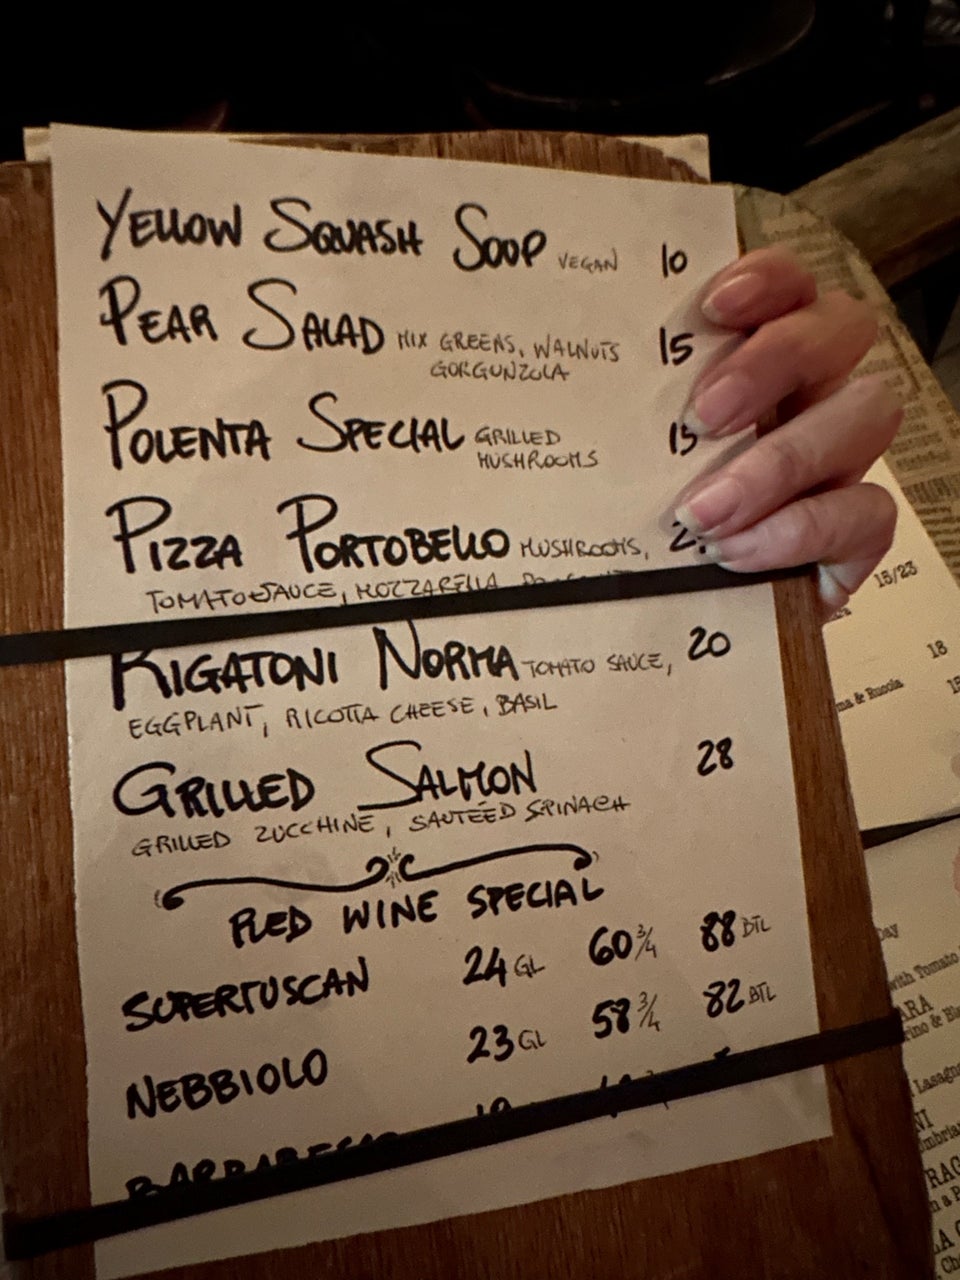 YELLOW SQUASH SOUP VEGAN 10
PEAR SALAD MIX GREENS, WALNUTS 15
GORGUNZOLA
POLENTA SPECIAL GRILLED 15
MUSHROOMS
PIZZA PORTOBELLO MUSHROOMS,
TOMATO SAUCE, MOZZARELLA
RIGATONI NORMA TOMATO SAUCE, 20
EGGPLANT, RICOTTA CHEESE, BASIL
GRILLED SALMON 28
GRILLED ZUCCHINE, SAUTÉED SPINACH
RED WINE SPECIAL
SUPERTUSCAN 24 GL 60 3/4 88 BTL
NEBBIOLO 23 GL 58 3/4 82 BTL
15/23
18
& Rucola
Day
with Tomato
ARA
& Bla
Lasagn
NI